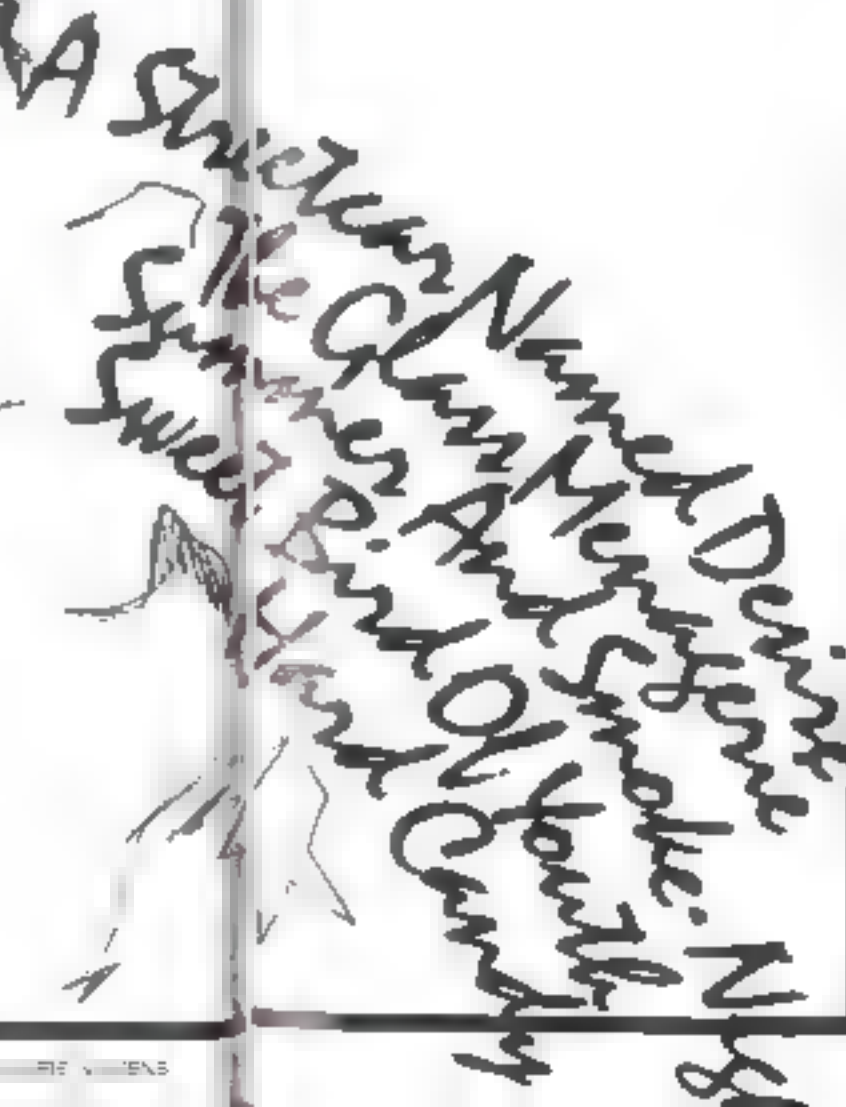 A Stricken Named Denis
The Glam Menagerie
Summer And Smoke. Nig
Sweet Bird Of Youth
Hard Candy